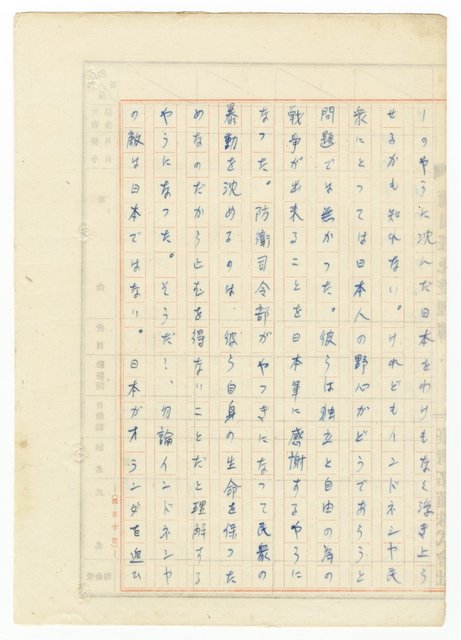 ーのやうに沈んだ日本をわけもなく浮き上ら
せるかも知れない。けれどもインドネシヤ民
衆にとつては日本人の野心がどうであらうと
問題では無かつた。彼らは独立と自由の為の
戦争が出来ることを日本軍に感謝するやうに
なつた。防衛司令部がやつきになつて民衆の
暴動を沈めるのは、彼ら自身の生命を保つた
めなのだから止むを得ないことだと理解する
やうになつた。そうだ！、勿論インドネシヤ
の敵は日本ではない。日本がオランダを追ひ